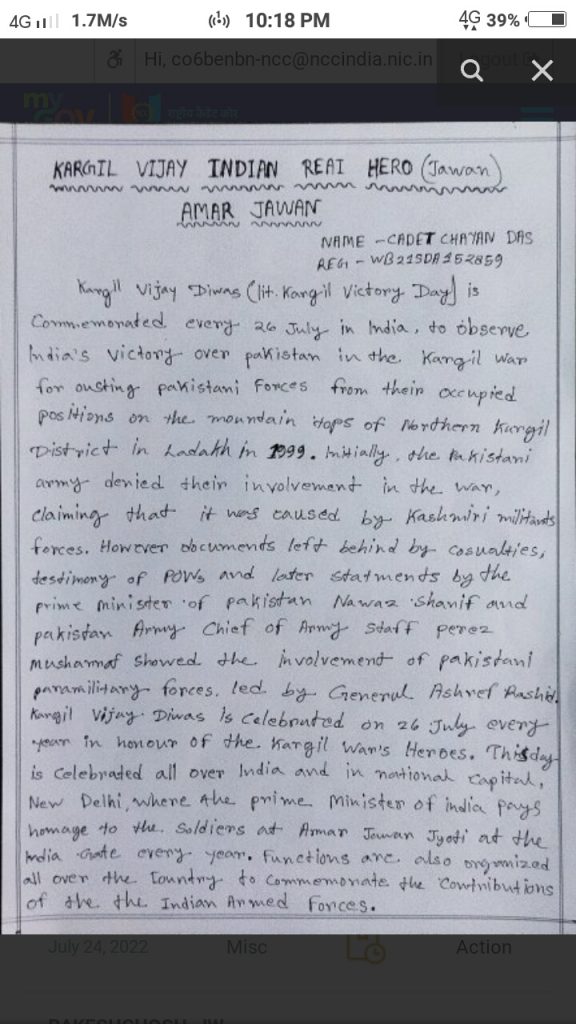 4G 1.7M/s 10:18 PM 4G 39%
Hi, co6benbn-ncc@nccindia.nic.in Logout
my
GOV राष्ट्रीय कैडेट कोर
KARGIL VIJAY INDIAN REAI HERO (Jawan)
AMAR JAWAN
NAME - CADET CHAYAN DAS
REGI - WB21SDA152859
Kargil Vijay Diwas (lit. Kargil Victory Day) is
Commemorated every 26 July in India, to observe
India's Victory over pakistan in the Kargil War
for ousting pakistani Forces from their occupied
positions on the mountain tops of Northern Kargil
District in Ladakh in 1999. Initially, the Pakistani
army denied their involvement in the war,
claiming that it was caused by Kashmiri militants
forces. However documents left behind by casualties,
testimony of POWs and later statments by the
prime minister of pakistan Nawaz Sharif and
pakistan Army Chief of Army Staff perez
musharraf showed the involvement of pakistani
paramilitary forces. led by General Ashref Rashid.
Kargil Vijay Diwas is Celebrated on 26 July every
year in honour of the Kargil War's Heroes. This day
is Celebrated all over India and in national Capital,
New Delhi, where the prime Minister of india pays
homage to the Soldiers at Amar Jawan Jyoti at the
India Gate every year. Functions are also organized
all over the Country to Commemorate the Contributions
of the the Indian Armed Forces.
July 24, 2022 Misc Action